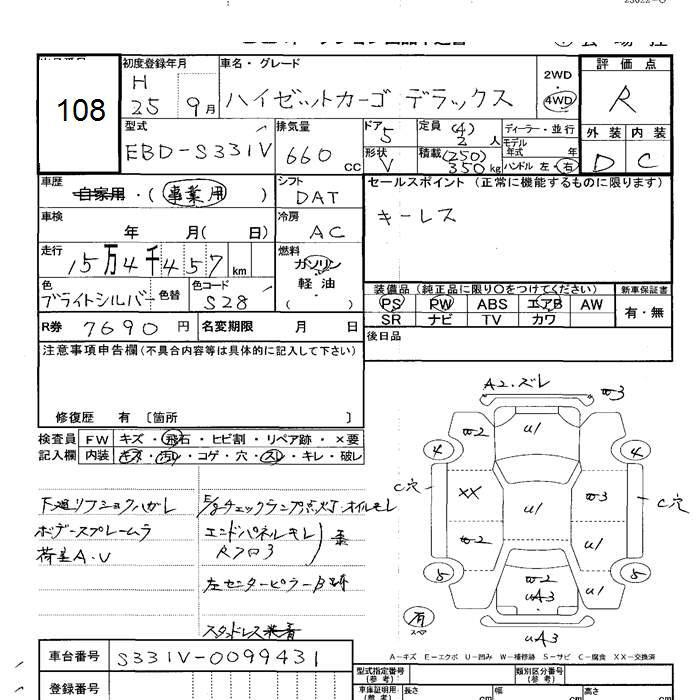 108
初度登録年月
H
25 9月
車名・グレード
ハイゼットカーゴ デラックス
2WD
・
4WD
評価点
R
外装 内装
D C
型式
EBD-S331V
排気量
660 cc
ドア 5
形状 V
定員 (4)
2 人
積載 (250)
350 kg
ディーラー・並行
モデル年式 年
ハンドル 左・右
車歴
自家用・(事業用)
シフト
DAT
車検
年 月( 日)
冷房
AC
走行
15万4千457 km
燃料
ガソリン
軽油
( )
色
ブライトシルバー
色替
色コード
S28
セールスポイント (正常に機能するものに限ります)
キーレス
装備品 (純正品に限り○をつけてください)
新車保証書
PS PW ABS エアB AW
有・無
SR ナビ TV カワ
R券 7690 円
名変期限 月 日
後日品
注意事項申告欄 (不具合内容等は具体的に記入して下さい)
修復歴 有 〔箇所 〕
検査員
記入欄
FW キズ・飛石・ヒビ割・リペア跡・×要
内装 キズ・汚レ・コゲ・穴・スレ・キレ・破レ
下廻リフショクハガレ
ボデースプレームラ
荷差A.V
E/gチェックランプ点灯オイルモレ
エンドパネルモレ
Rフロ3
左センターピラー
スタッドレス装着
A2・ズレ
w3
w2
u1
4
4
C穴
XX
u1
w3
C穴
w2
u1
5
5
w2
uA3
u1
有
スペア
uA3
A－キズ E－エクボ U－凹み W－補修跡 S－サビ C－腐食 XX－交換済
車台番号
S331V-0099431
登録番号
型式指定番号
(参考)
類別区分番号
(参考)
車庫証明用
(参考)
長さ cm
幅 cm
高さ cm